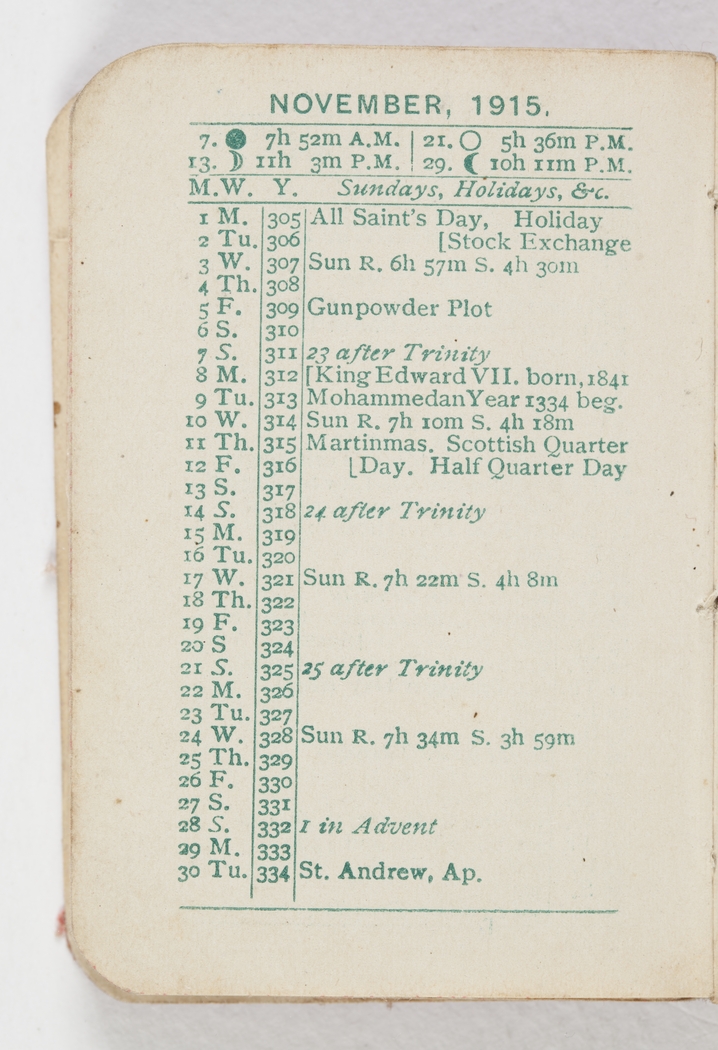 NOVEMBER, 1915.
7. ● 7h 52m A.M. | 21. ○ 5h 36m P.M.
13. ☽ 11h 3m P.M. | 29. ☾ 10h 11m P.M.
M.W. Y. Sundays, Holidays, &c.
1 M. 305 All Saint's Day, Holiday
2 Tu. 306 [Stock Exchange
3 W. 307 Sun R. 6h 57m S. 4h 30m
4 Th. 308
5 F. 309 Gunpowder Plot
6 S. 310
7 S. 311 23 after Trinity
8 M. 312 [King Edward VII. born, 1841
9 Tu. 313 Mohammedan Year 1334 beg.
10 W. 314 Sun R. 7h 10m S. 4h 18m
11 Th. 315 Martinmas. Scottish Quarter
12 F. 316 [Day. Half Quarter Day
13 S. 317
14 S. 318 24 after Trinity
15 M. 319
16 Tu. 320
17 W. 321 Sun R. 7h 22m S. 4h 8m
18 Th. 322
19 F. 323
20 S 324
21 S. 325 25 after Trinity
22 M. 326
23 Tu. 327
24 W. 328 Sun R. 7h 34m S. 3h 59m
25 Th. 329
26 F. 330
27 S. 331
28 S. 332 1 in Advent
29 M. 333
30 Tu. 334 St. Andrew, Ap.